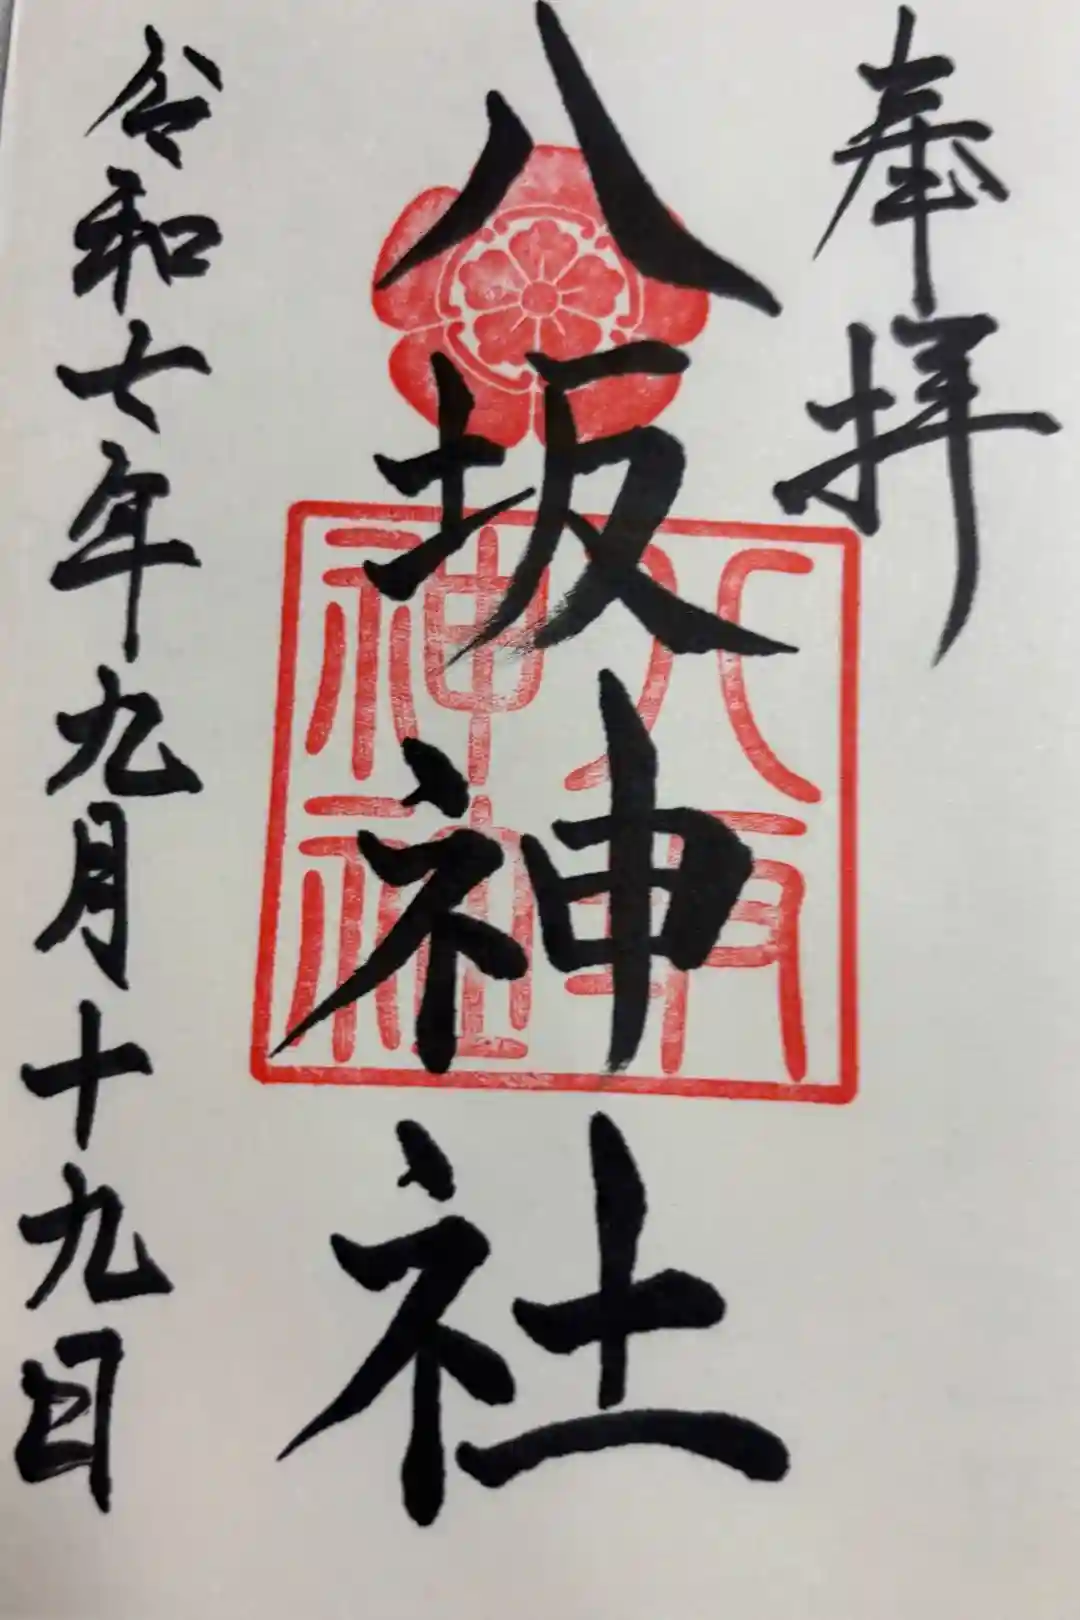 奉拝
八坂神社
八坂
神社
令和七年九月十九日